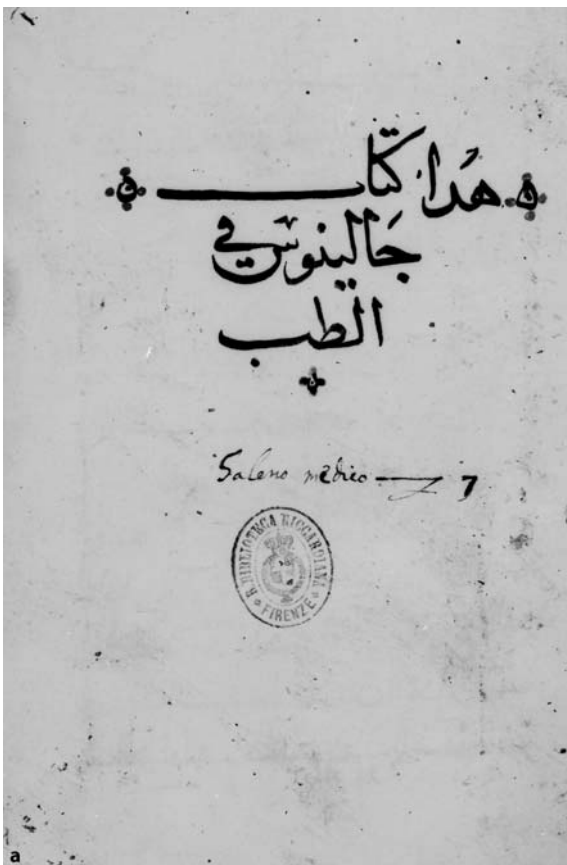 هذا كتاب
جالينوس في
الطب
Galeno medico 7
R. BIBLIOTECA RICCARDIANA
FIRENZE
a